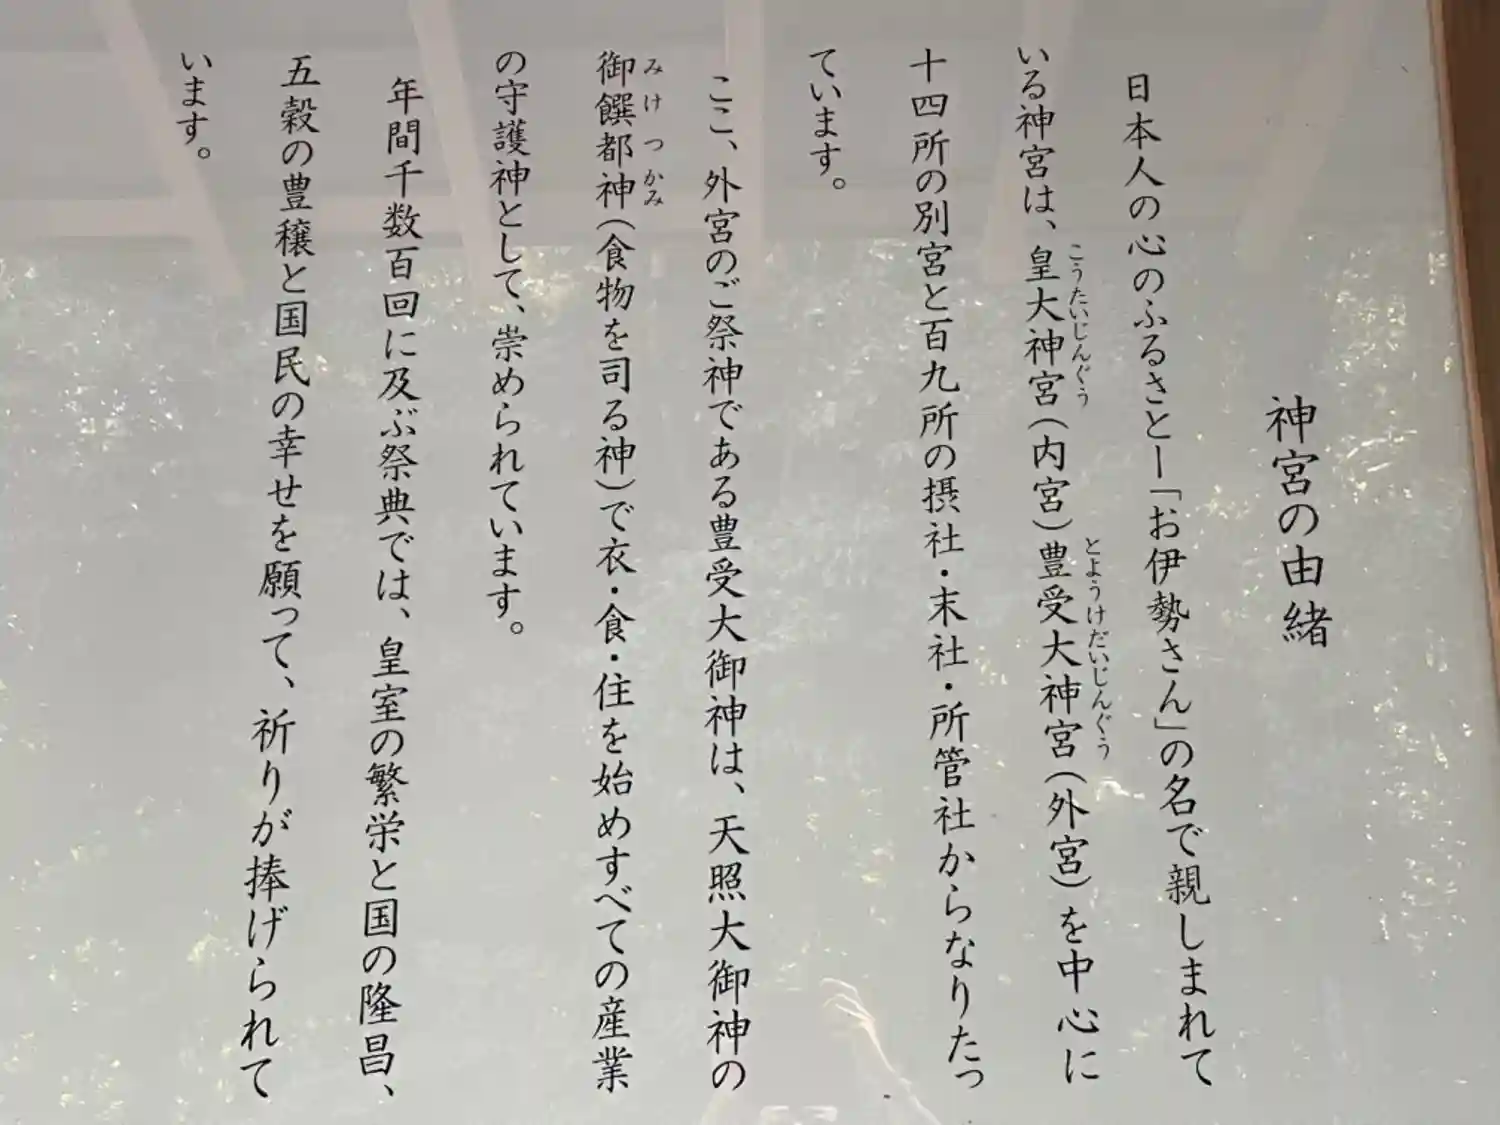 神宮の由緒
日本人の心のふるさとー「お伊勢さん」の名で親しまれて
いる神宮は、皇大神宮（内宮）豊受大神宮（外宮）を中心に
こうたいじんぐう
とようけだいじんぐう
十四所の別宮と百九所の摂社・末社・所管社からなりたっ
ています。
ここ、外宮のご祭神である豊受大御神は、天照大御神の
御饌都神（食物を司る神）で衣・食・住を始めすべての産業
みけつかみ
の守護神として、崇められています。
年間千数百回に及ぶ祭典では、皇室の繁栄と国の隆昌、
五穀の豊穣と国民の幸せを願って、祈りが捧げられて
います。